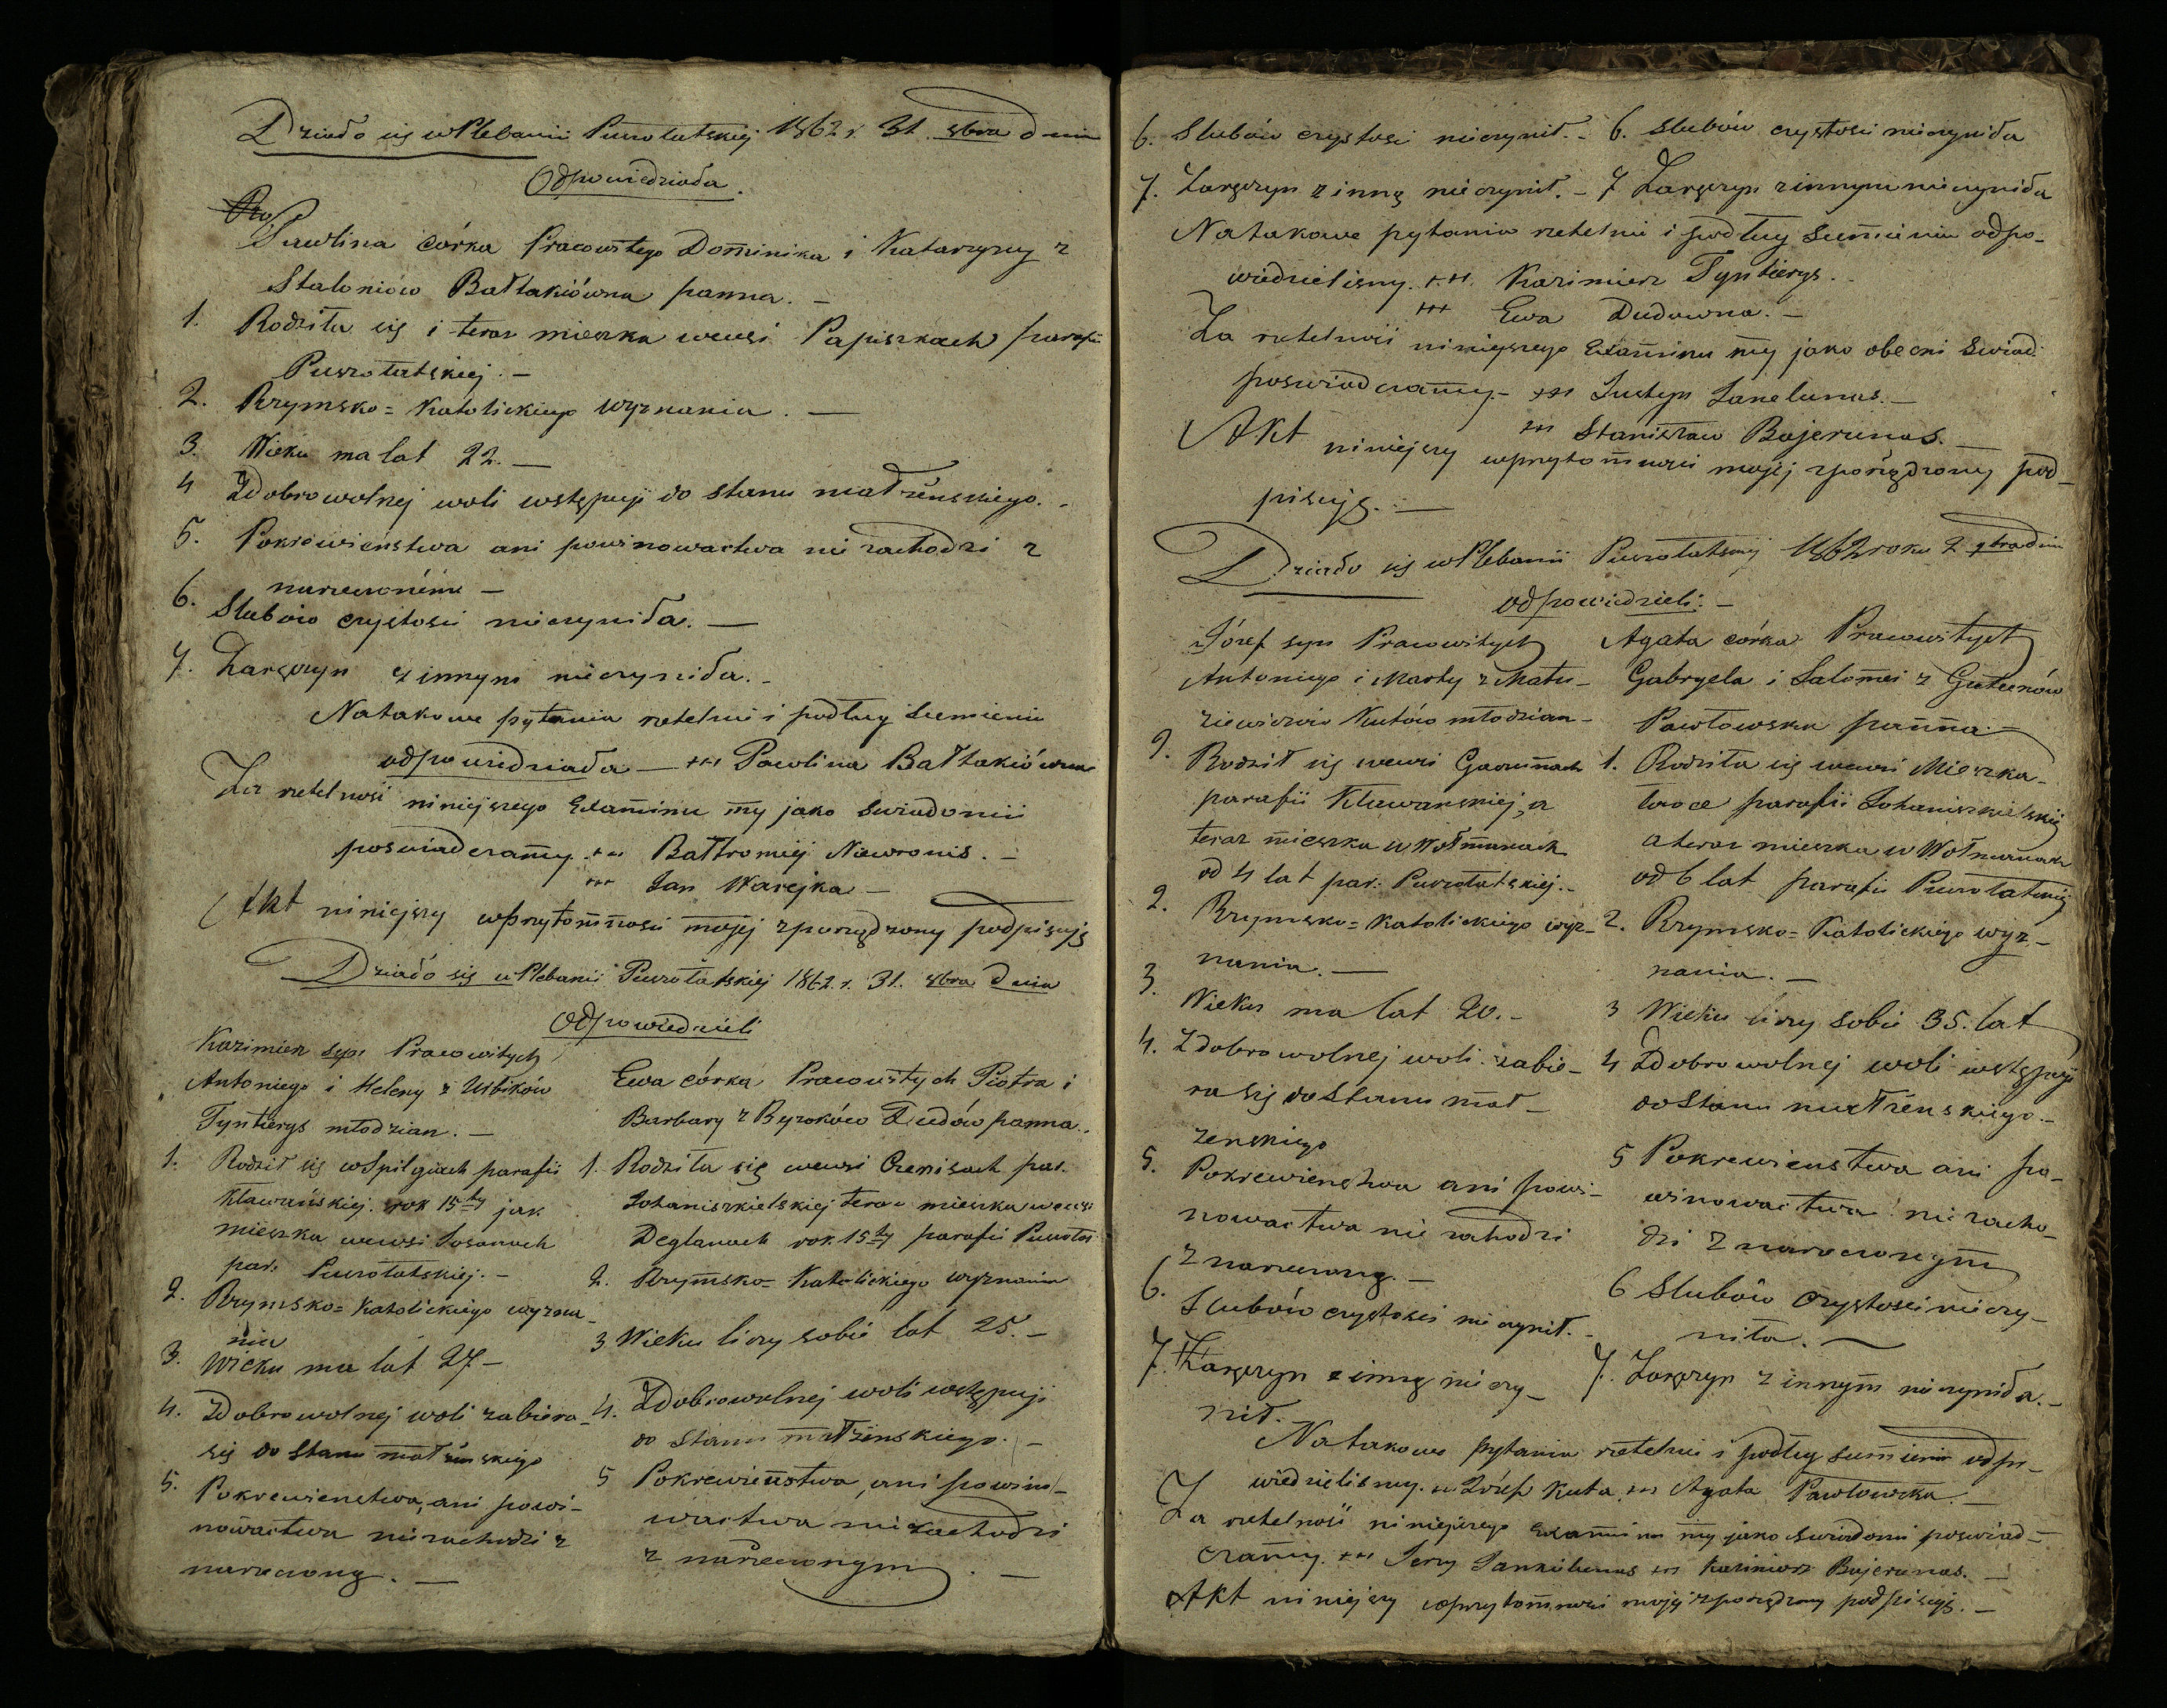 Działo się w Plebanii Puszołatskiej 1862 r. 31. 8bra dnia
Odpowiedziała.
Pawlina córka Pracowitego Dominika i Katarzyny z
Staloniów Bałtakiówna panna. —
1. Rodziła się i teraz mieszka wewsi Papiszkach parafii
Puszołatskiej. —
2. Rzymsko=Katolickiego wyznania. —
3. Wieku ma lat 22. —
4 Zdobrowolnej woli wstępuje do stanu małżeńskiego. -
5. Pokrewieństwa ani powinowactwa nie zachodzi z
narzeczonémi —
6. Slubów czystości nieczyniła. —
7. Zaręczyn z innym nieczyniła. -
Natakowe pytania rzetelnie i podług sumienia
odpowiedziała — +++ Pawlina Bałtakiówna
Za rzetelność niniejszego Examinu my jako swiadomii
poswiadczamy. +++ Bałtromiéj Niewronis. —
+++ Jan Warejka —
Akt niniejszy wprzytomnosci mojéj zporządzony podpisuję
Działo się w Plebanii Puszołatskiej 1862. r. 31. 8bra Dnia
Odpowiedzieli
Kazimierz syn Pracowitych
Antoniego i Heleny z Usbików
Tyntierys młodzian. —
1. Rodził się w Spilgiach parafii
Kławańskiej. rok 15ty jak
mieszka wewsi Sosanach
par. Puszołatskiej. —
2. Rzymsko=Katolickiego wyzna-
nia
3. Wieku ma lat 27 —
4. Zdobrowolnej woli zabiera-
się do stanu małżeńskiego
5. Pokrewieństwa, ani powi-
nowactwa niezachodzi z
narzeczoną. —
Ewa córka Pracowitych Piotra i
Barbary z Byzoków Dudów panna.
1. Rodziła się wewsi Czenisach par.
Johaniszkielskiej teraz mieszka wewsi
Deglanach rok 15ty parafii Puszołat
2. Rzymsko=Katolickiego wyznania
3 Wieku liczy sobie lat 25. —
4. Zdobrowolnej woli wstępuje
do stanu małżeńskiego. —
5 Pokrewieństwa, ani powino-
wactwa niezachodzi
z narzeczonym. —
6. Slubów czystosci nieczynił. - 6. Slubów czystosci nieczyniła
7. Zaręczyn z inną nieczynił. - 7 Zaręczyn z innym nieczyniła
Natakowe pytania rzetelnie i podług sumienia odpo-
wiedzielismy. +++ Kazimierz Tyntierys. -
+++ Ewa Dudowna. —
Za rzetelność niniejszego Examinu my jako obecni swiad.
poswiadczamy. - +++ Justyn Janelunas. —
+++ Stanisław Bajerunas. —
Akt niniejszy wprzytomnosci mojéj zporządzony pod-
pisuję. —
Działo się w Plebanii Puszołatskiej 1862 roku 2 9bra dnia
odpowiedzieli: —
Józef syn Pracowitych
Antoniego i Marty z Matu-
ziewiczów Kutów młodzian-
1. Rodził się wewsi Gawenach
parafii Kławanskiej, a
teraz mieszka w Wołmanach
od 4 lat par. Puszołatskiej. -
2. Rzymsko=Katolickiego wyz-
nania. —
3. Wieku ma lat 20. -
4. Zdobrowolnej woli zabie-
ra się do Stanu mał-
żenskiego
5. Pokrewienstwa ani powi-
nowactwa nie zahodzi
z narzeczoną. —
6. Slubów czystosci nieczynił. -
7. Zaręczyn z inną nieczy-
nił. -
Agata córka Pracowitych
Gabryela i Salomei z Gutenów
Pawłowska panna. —
1. Rodziła się wewsi Mieszka-
łaoce parafii Johaniszkielskiej
a teraz mieszka w Wołmanach
od 6 lat parafii Puszołatskiej
2. Rzymsko=Katolickiego wyz.-
nania. —
3 Wieku liczy sobie 35. lat
4 Zdobrowolnej woli wstępuje
do Stanu małżenskiego. -
5 Pokrewienstwa ani po-
winowactwa nie zacho-
dzi z narzeczonym
6 Slubów czystosci nieczy-
niła. —
7. Zaręczyn z innym nieczyniła. -
Natakowe pytania rzetelnie i podług sumienia odpo-
wiedzielismy. +++ Józef Kuta. +++ Agata Pawłowska. —
Za rzetelność niniejszego Examinu my jako swiadomi poswiad-
czamy. +++ Jerzy Jankiewnas +++ Kazimierz Bajerunas. —
Akt niniejszy wprzytomnosci mojéj zporządzony podpisuję. —